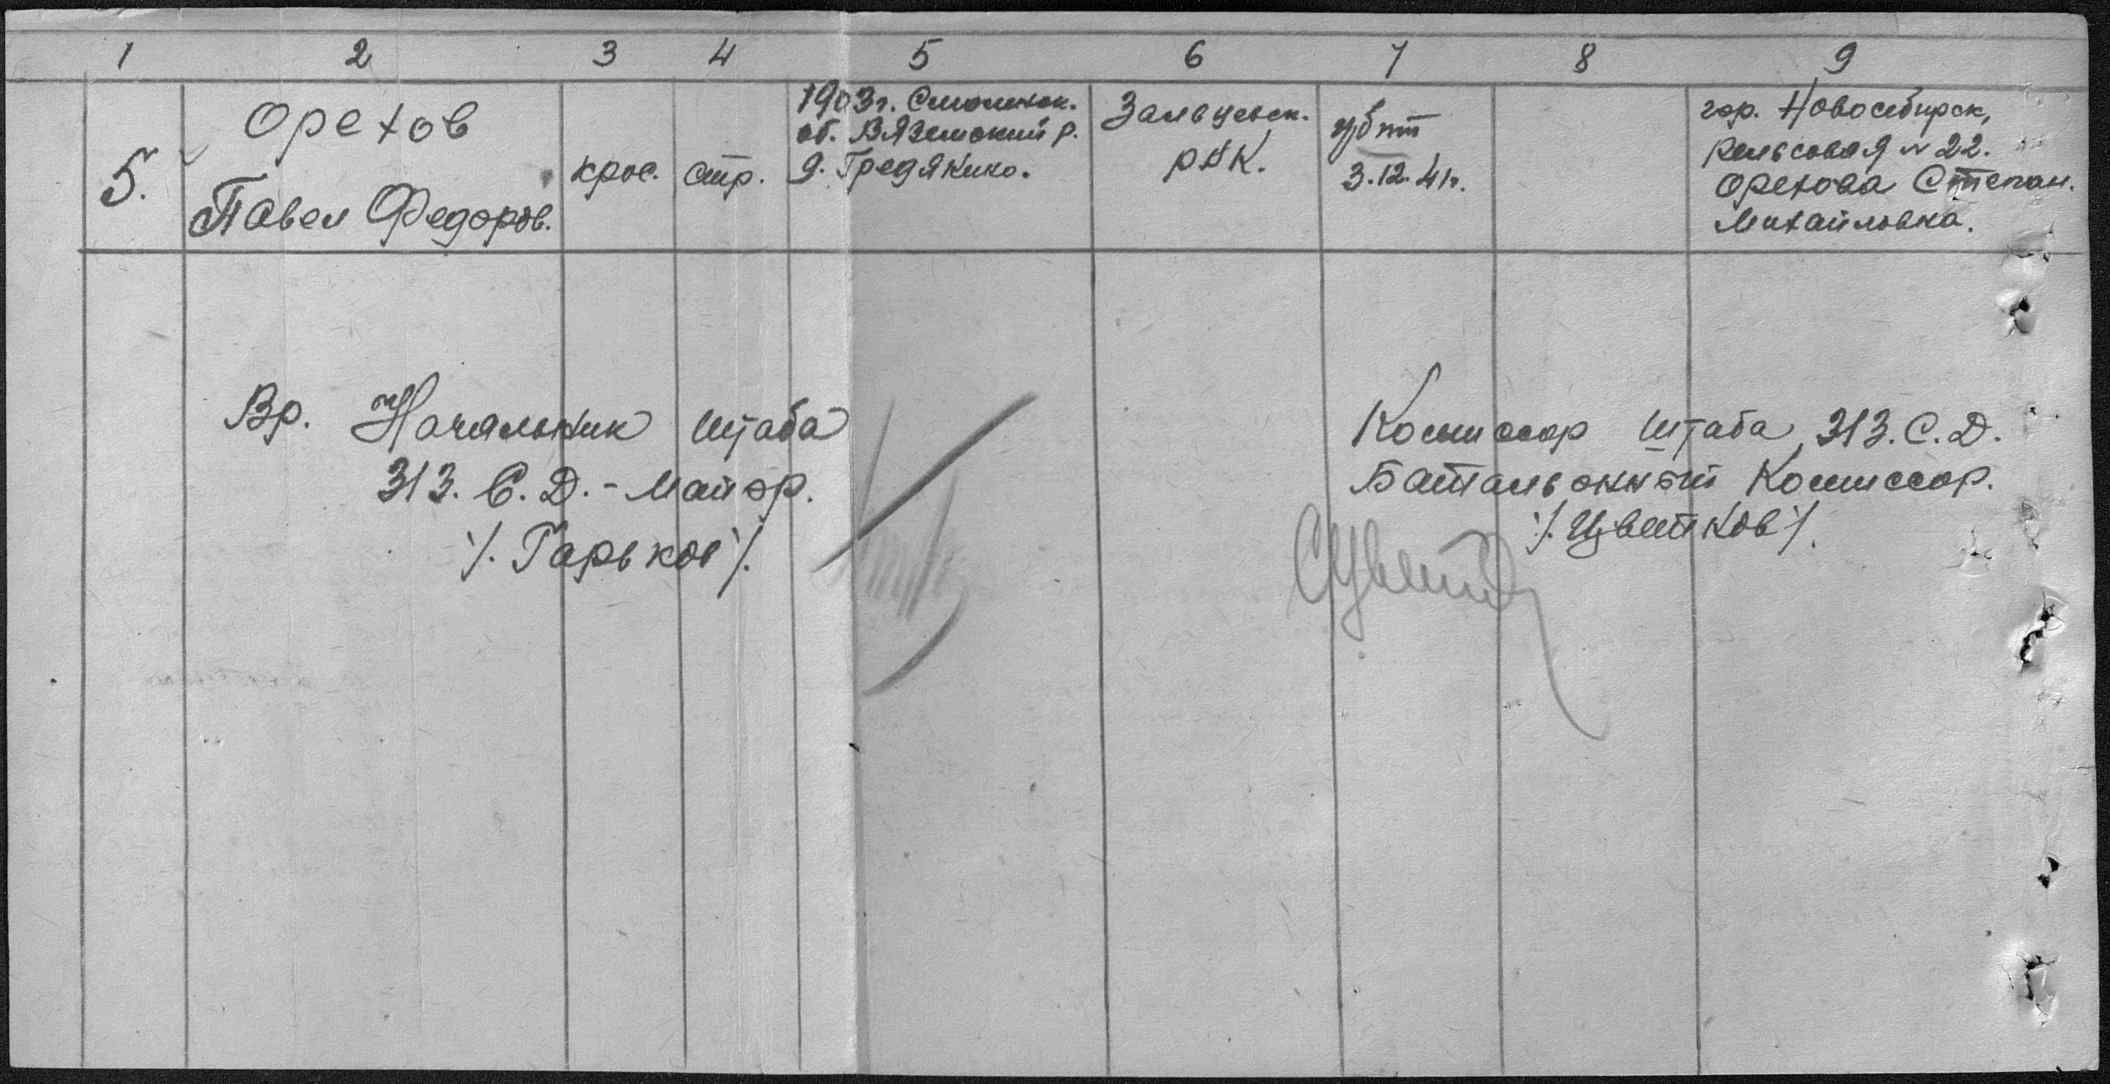 1 2 3 4 5 6 7 8 9
5.
Орехов
Павел Федоров.
крос.
стр.
1903г. Смоленск.
об. Вяземский р.
д. Гредякино.
Зальцовск.
РВК.
убит
3.12.41г.
гор. Новосибирск,
Рельсовая № 22.
Орехова Степан.
Михайловна.
Вр. Начальник штаба
313. С. Д. - Майор.
/. Гарьков /.
Комиссар штаба 313. С. Д.
Батальонный Комиссар.
/. Цветков /.